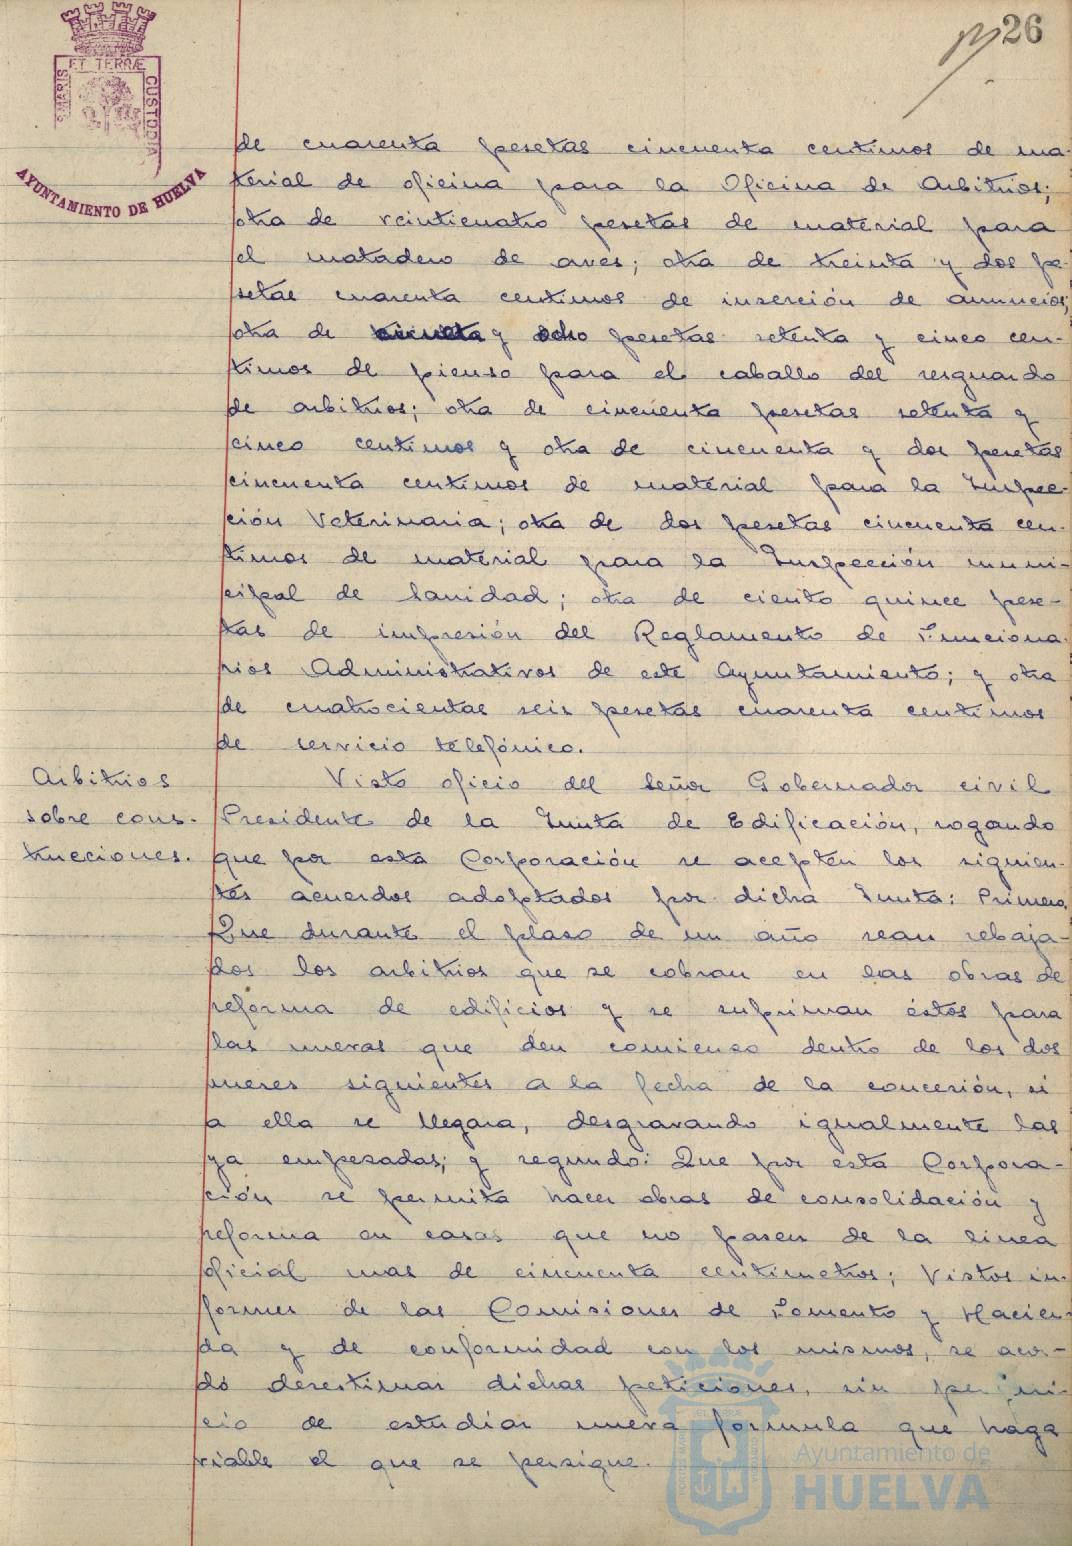 26
S MARIS ET TERRÆ CUSTODIA
AYUNTAMIENTO DE HUELVA
de cuarenta pesetas cincuenta centimos de ma-
terial de oficina para la Oficina de Arbitrios;
otra de veinticuatro pesetas de material para
el matadero de aves; otra de treinta y dos pe-
setas cuarenta centimos de inserción de anuncios;
otra de y ocho pesetas setenta y cinco cen-
timos de pienso para el caballo del resguardo
de arbitrios; otra de cincuenta pesetas setenta y
cinco centimos y otra de cincuenta y dos pesetas
cincuenta centimos de material para la Inspec-
ción Veterinaria; otra de dos pesetas cincuenta cen-
timos de material para la Inspección muni-
cipal de Sanidad; otra de ciento quince pese-
tas de impresión del Reglamento de Funciona-
rios Administrativos de este Ayuntamiento; y otra
de cuatrocientas seis pesetas cuarenta centimos
de servicio telefónico.
Arbitrios
sobre cons-
trucciones.
Visto oficio del Señor Gobernador civil
Presidente de la Junta de Edificación, rogando
que por esta Corporación se acepten los siguien-
tes acuerdos adoptados por dicha Junta: Primero,
Que durante el plaso de un año sean rebaja-
dos los arbitrios que se cobran en las obras de
reforma de edificios y se supriman éstos para
las nuevas que den comienso dentro de los dos
meses siguientes a la fecha de la concesión, si
a ella se llegara, desgravando igualmente las
ya empesadas; y segundo: Que por esta Corpora-
ción se permita hacer obras de consolidación y
reforma en casas que no pasen de la linea
oficial mas de cincuenta centimetros; Vistos in-
formes de las Comisiones de Fomento y Hacien-
da y de conformidad con los mismos, se acor-
dó desestimar dichas peticiones, sin perjui-
cio de estudiar nueva formula que haga
viable el que se persigue.
Ayuntamiento de
HUELVA